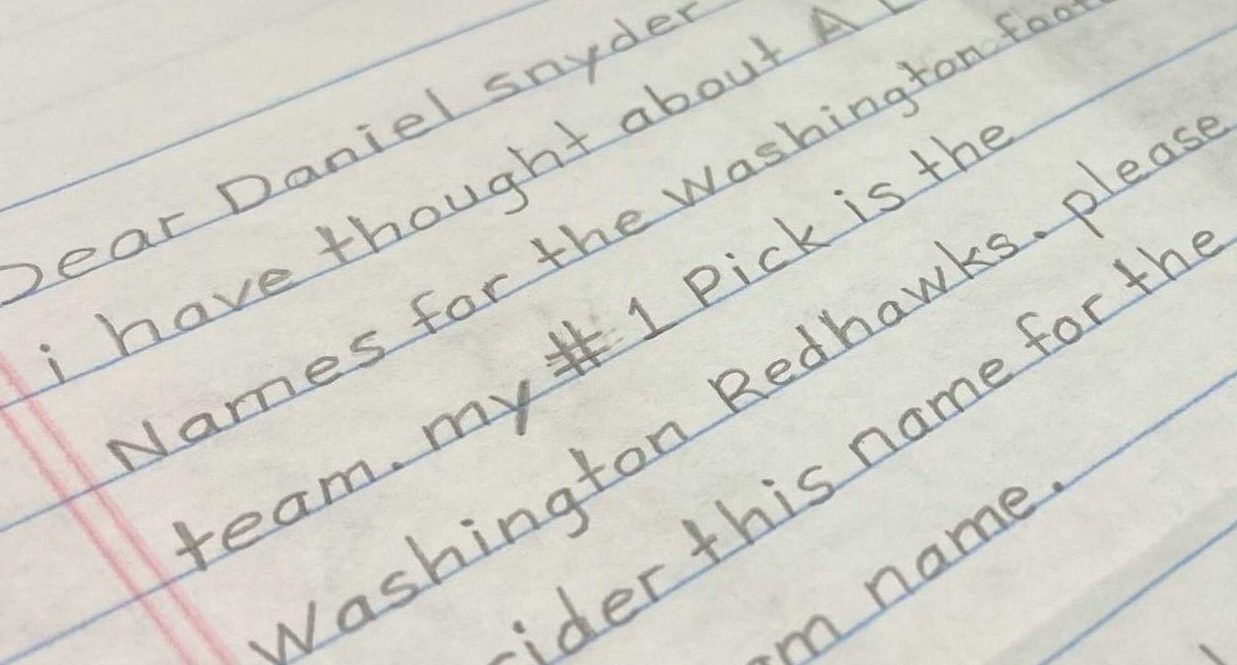 Dear Daniel snyder
i have thought about A
Names for the Washington foot
team. my # 1 Pick is the
Washington Redhawks. please
sider this name for the
m name.